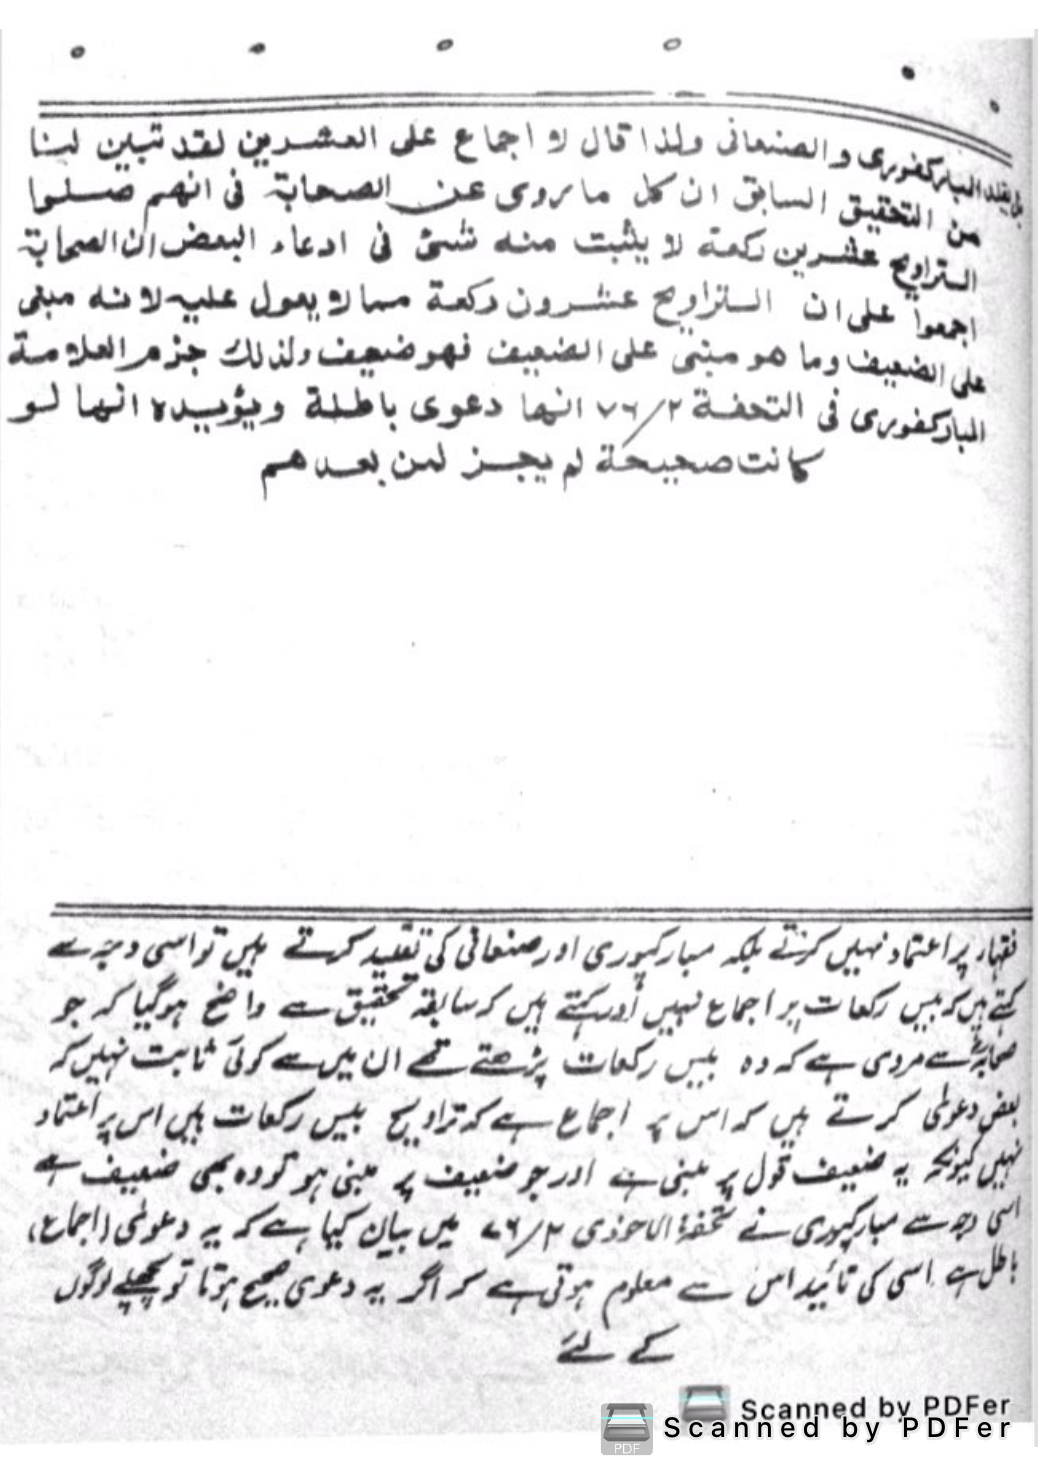 بل يقلد المباركفورى و الصنعانى ولذا قال لا اجماع على العشرين لقد تبين لنا
من التحقيق السابق ان كل ما يروى عن الصحابة فى انهم صلوا
التراويح عشرين ركعة لا يثبت منه شئ فى ادعاء البعض ان الصحابة
اجمعوا على ان التراويح عشرون ركعة مما لا يعول عليه لانه مبنى
على الضعيف وما هو مبنى على الضعيف فهو ضعيف ولذلك جزم العلامة
المباركفورى فى التحفة ٢/٧٦ انها دعوى باطلة ويؤيده انها لو
كانت صحيحة لم يجز لمن بعدهم
فقہاء پر اعتماد نہیں کرتے بلکہ مبارکپوری اور صنعانی کی تقلید کرتے ہیں تو اسی وجہ سے
کہتے ہیں کہ بیس رکعات پر اجماع نہیں اور کہتے ہیں کہ سابقہ تحقیق سے واضح ہوگیا کہ جو
صحابہؓ سے مروی ہے کہ وہ بیس رکعات پڑھتے تھے ان میں سے کوئی ثابت نہیں کہ
بعض دعویٰ کرتے ہیں کہ اس پر اجماع ہے کہ تراویح بیس رکعات ہیں اس پر اعتماد
نہیں کیونکہ یہ ضعیف قول پر مبنی ہے اور جو ضعیف پر مبنی ہو تو وہ بھی ضعیف ہے
اسی وجہ سے مبارکپوری نے تحفۃ الاحوذی ٢/٧٦ میں بیان کیا ہے کہ یہ دعویٰ (اجماع)
باطل ہے اسی کی تائید اس سے معلوم ہوتی ہے کہ اگر یہ دعوی صحیح ہوتا تو پچھلے لوگوں
کے لئے
Scanned by PDFer
Scanned by PDFer
PDF